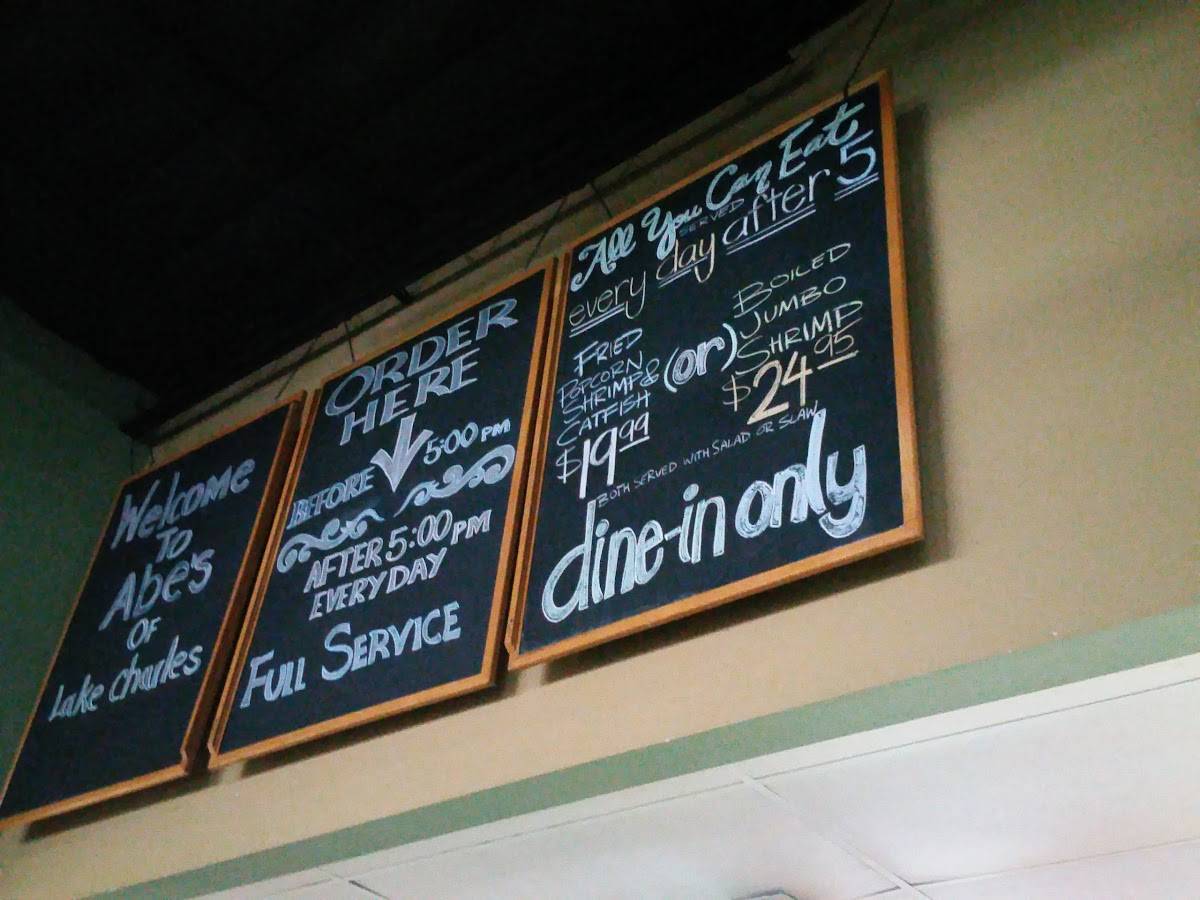 Welcome
TO
Abe's
OF
Lake Charles
ORDER
HERE
BEFORE 5:00 PM
AFTER 5:00 PM
EVERYDAY
FULL SERVICE
All You Can Eat
SERVED
every day after 5
FRIED
POPCORN
SHRIMP &
CATFISH
$19.99
(or)
BOILED
JUMBO
SHRIMP
$24.95
BOTH SERVED WITH SALAD OR SLAW
dine-in only